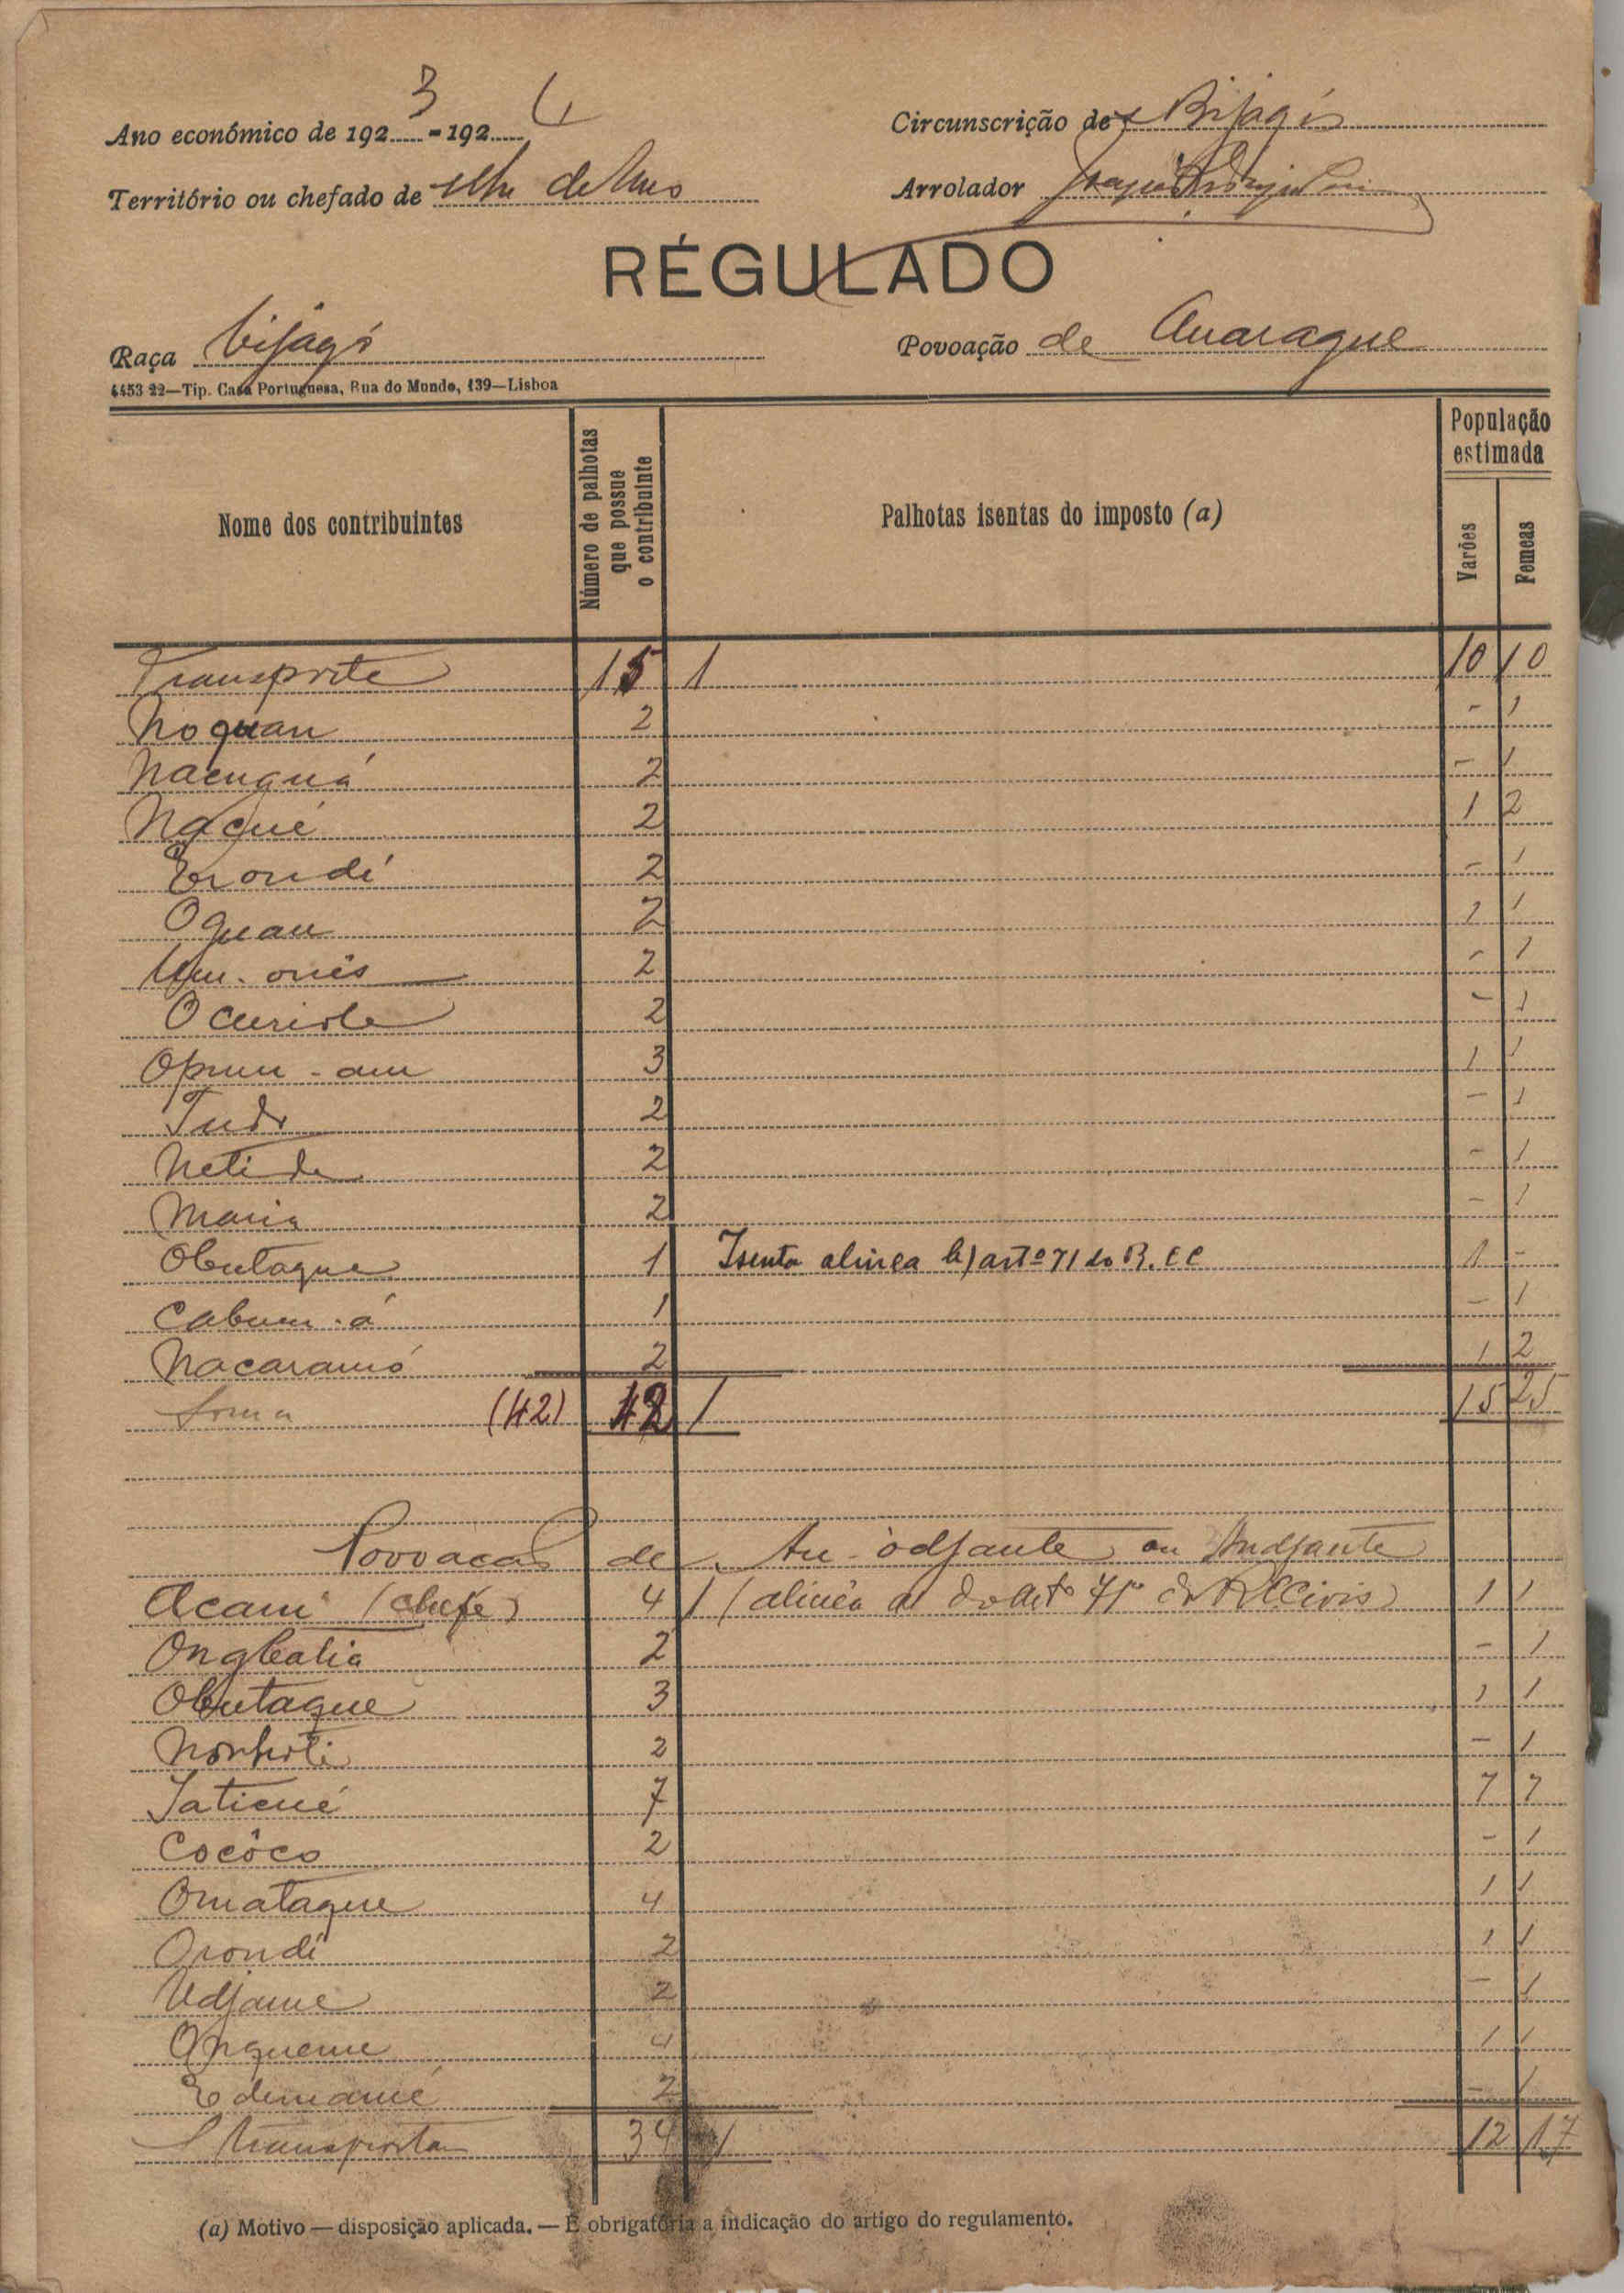 Ano económico de 1923-1924 Circunscrição de Bijagós
Território ou chefado de Ilha de Uno Arrolador
RÉGULADO
Raça bijagó Povoação de Anaraque
4453 22—Tip. Casa Portuguesa, Rua do Mundo, 139—Lisboa
Nome dos contribuintes
Número de palhotas que possue o contribuinte
Palhotas isentas do imposto (a)
População estimada
Varões
Femeas
Transporte 15 1 10 10
Noquan 2 - 1
Nacuguá 2 - 1
Naqué 2 1 2
Erondi 2 - 1
Oquan 2 1 1
2 - 1
Ocuriole 2 - 1
Opum-am 3 1 1
Tudo 2 - 1
Netida 2 - 1
Maria 2 - 1
Obutaque 1 Isenta alinea b) artº 71 do R. C C 1 -
Cabum-á 1 - 1
Nacaramó 2 1 2
Soma (42) 42 1 15 25
Povoacao de An-òdjante ou Andjante
Acam (chefe) 4 1 (alinea a do artº 71º do R. C Civis) 1 1
Ongbalia 2 - 1
Obutaque 3 1 1
2 - 1
Iaticué 7 7 7
Cocôco 2 - 1
Omataque 4 1 1
Orondi 2 1 1
Udjame 2 - 1
Onqueme 4 1 1
Edemamé 2 - 1
Transporta 34 1 12 17
(a) Motivo — disposição aplicada. — É obrigatória a indicação do artigo do regulamento.